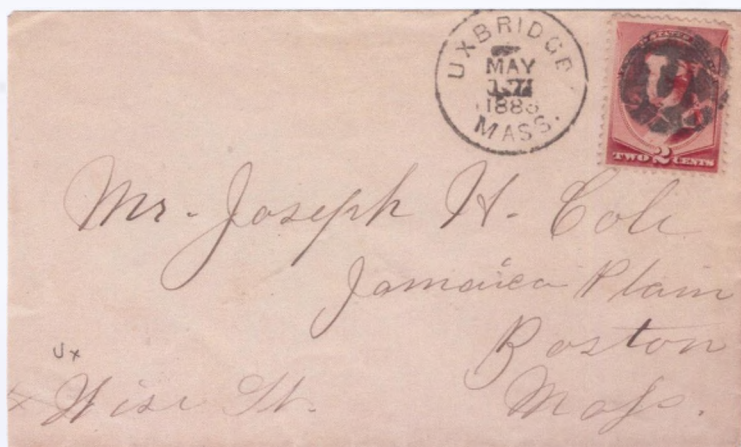 UXBRIDGE
MAY
188
MASS.
U
TWO 2 CENTS
Mr. Joseph H. Cole
Jamaica Plain
Boston
Mass.
Ux
Wise St.